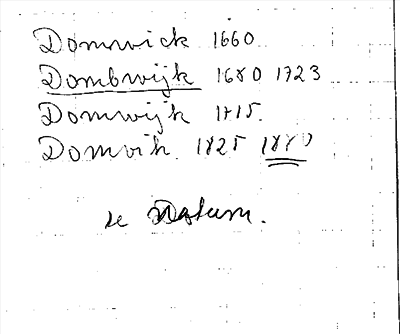 Domwick 1660
Dombwijk 1680 1723
Domwijk 1715.
Domvik 1825 1880